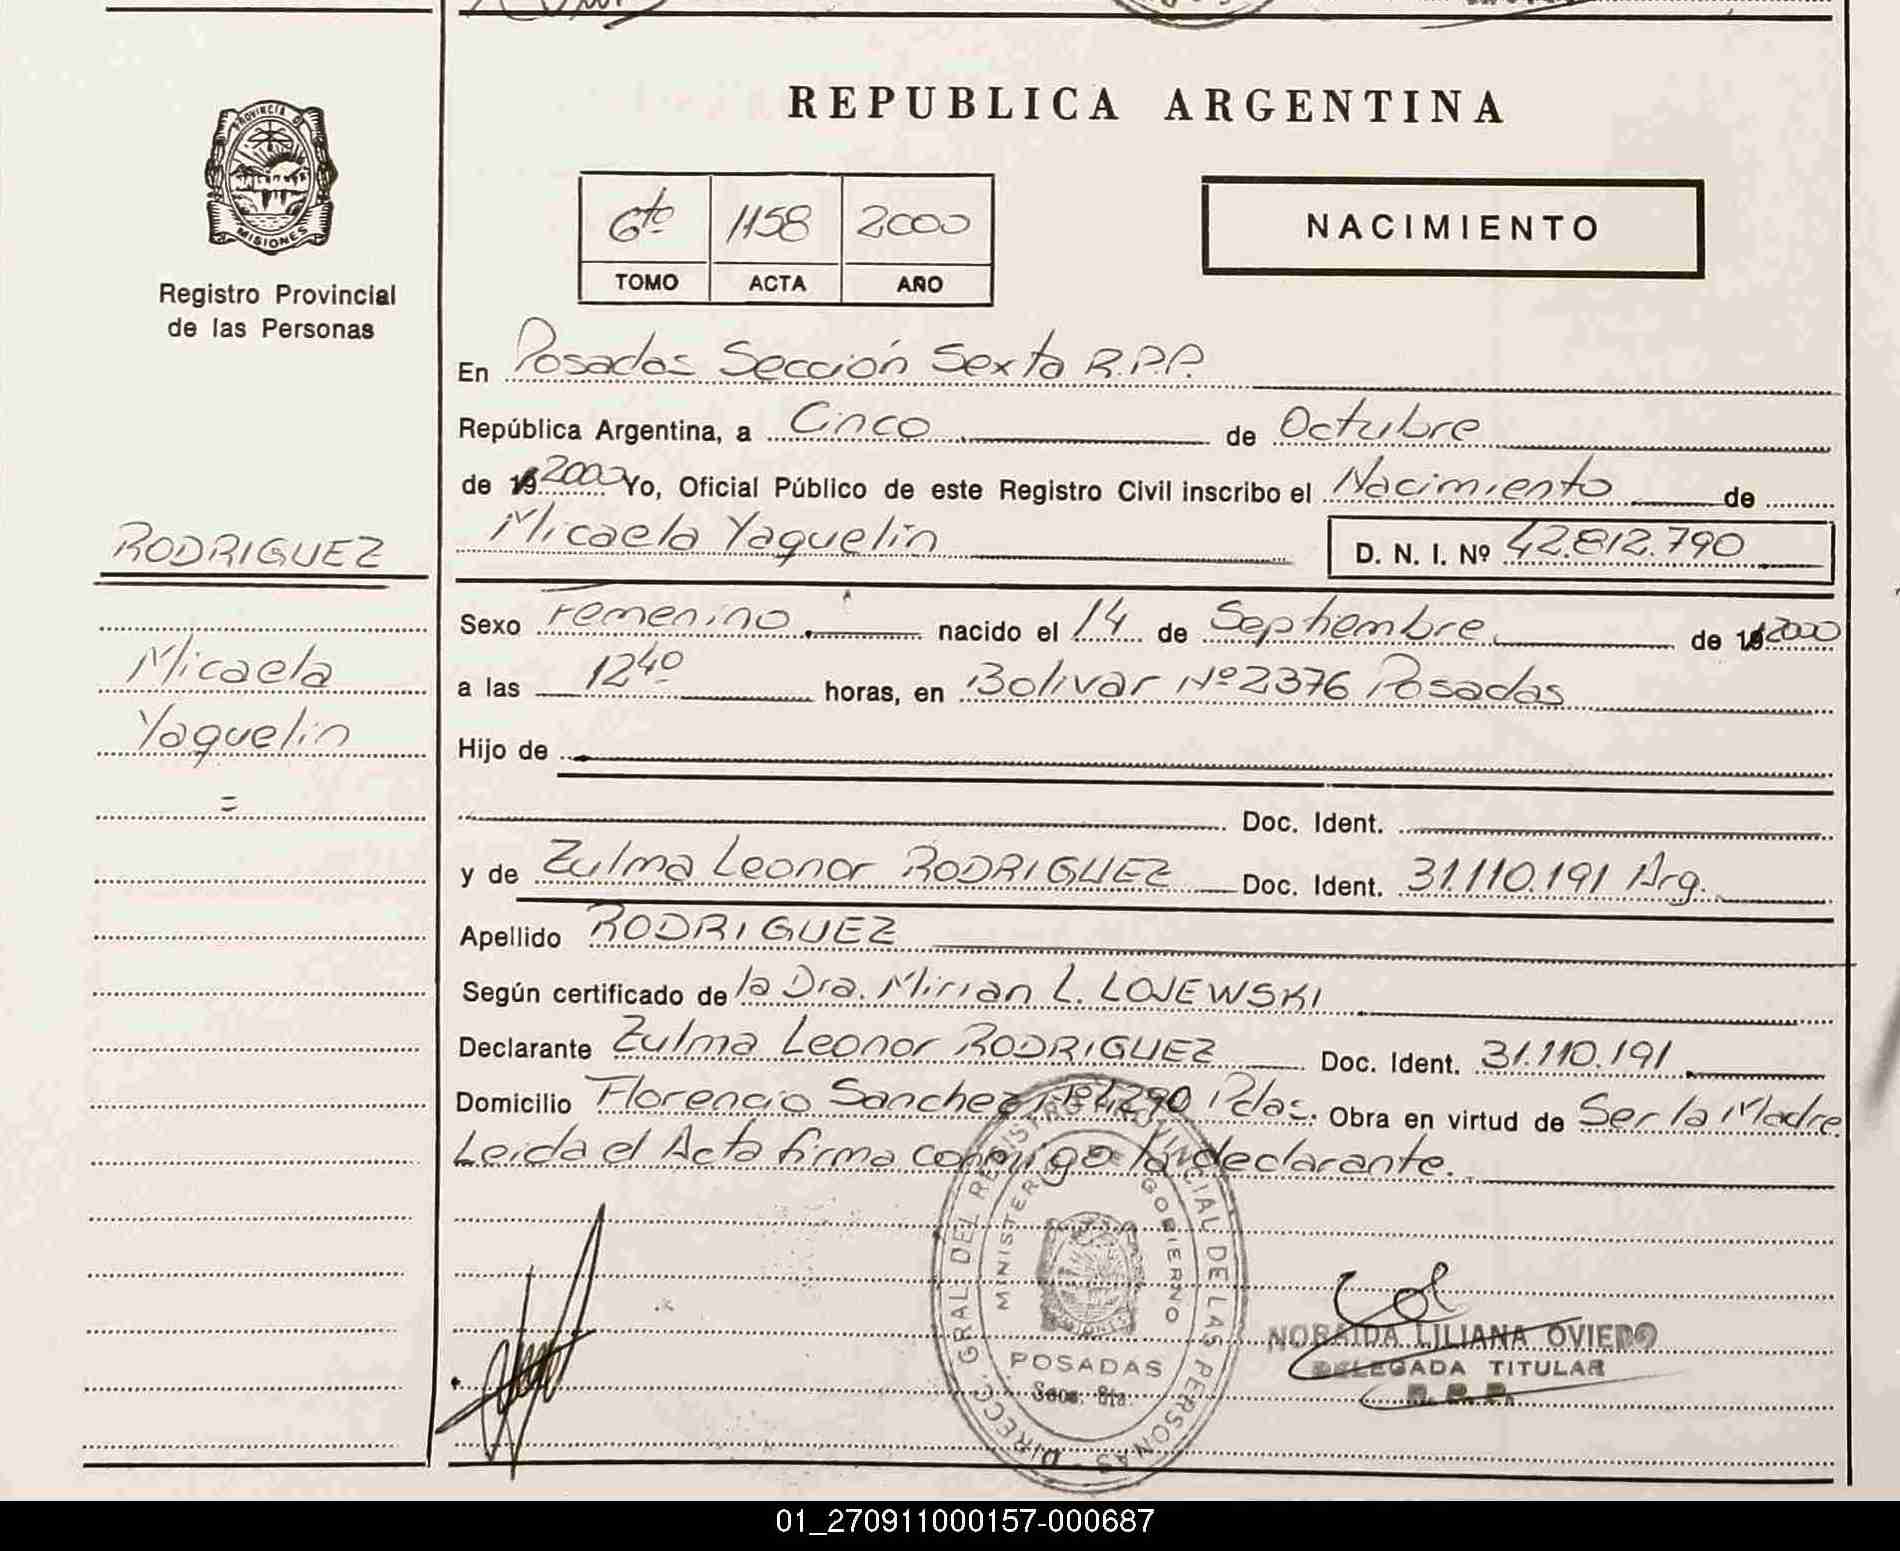 REPUBLICA ARGENTINA
PROVINCIA D
MISIONES
Registro Provincial
de las Personas
6to 1158 2000
TOMO ACTA AÑO
NACIMIENTO
En Posadas Sección Sexta R.P.P.
República Argentina, a Cinco de Octubre
de 19 2000 Yo, Oficial Público de este Registro Civil inscribo el Nacimiento de
RODRIGUEZ
Micaela Yaquelin D. N. I. Nº 42.812.790
Sexo Femenino nacido el 14 de Septiembre de 19 2000
Micaela
a las 12 40 horas, en Bolivar Nº 2376 Posadas
Yaquelin
Hijo de
=
Doc. Ident.
y de Zulma Leonor RODRIGUEZ Doc. Ident. 31.110.191 Arg.
Apellido RODRIGUEZ
Según certificado de la Dra. Mirian L. LOJEWSKI
Declarante Zulma Leonor RODRIGUEZ Doc. Ident. 31.110.191
Domicilio Florencio Sanchez Nº 4290 Pdas. Obra en virtud de Ser la Madre
Leida el Acta firma conmigo la declarante.
DIRECC. GRAL DEL REGISTRO PROVINCIAL DE LAS PERSONAS
MINISTERIO DE GOBIERNO
MISIONES
POSADAS
Secc. 6ta.
NORAIDA LILIANA OVIEDO
DELEGADA TITULAR
R. P. P.
01_270911000157-000687